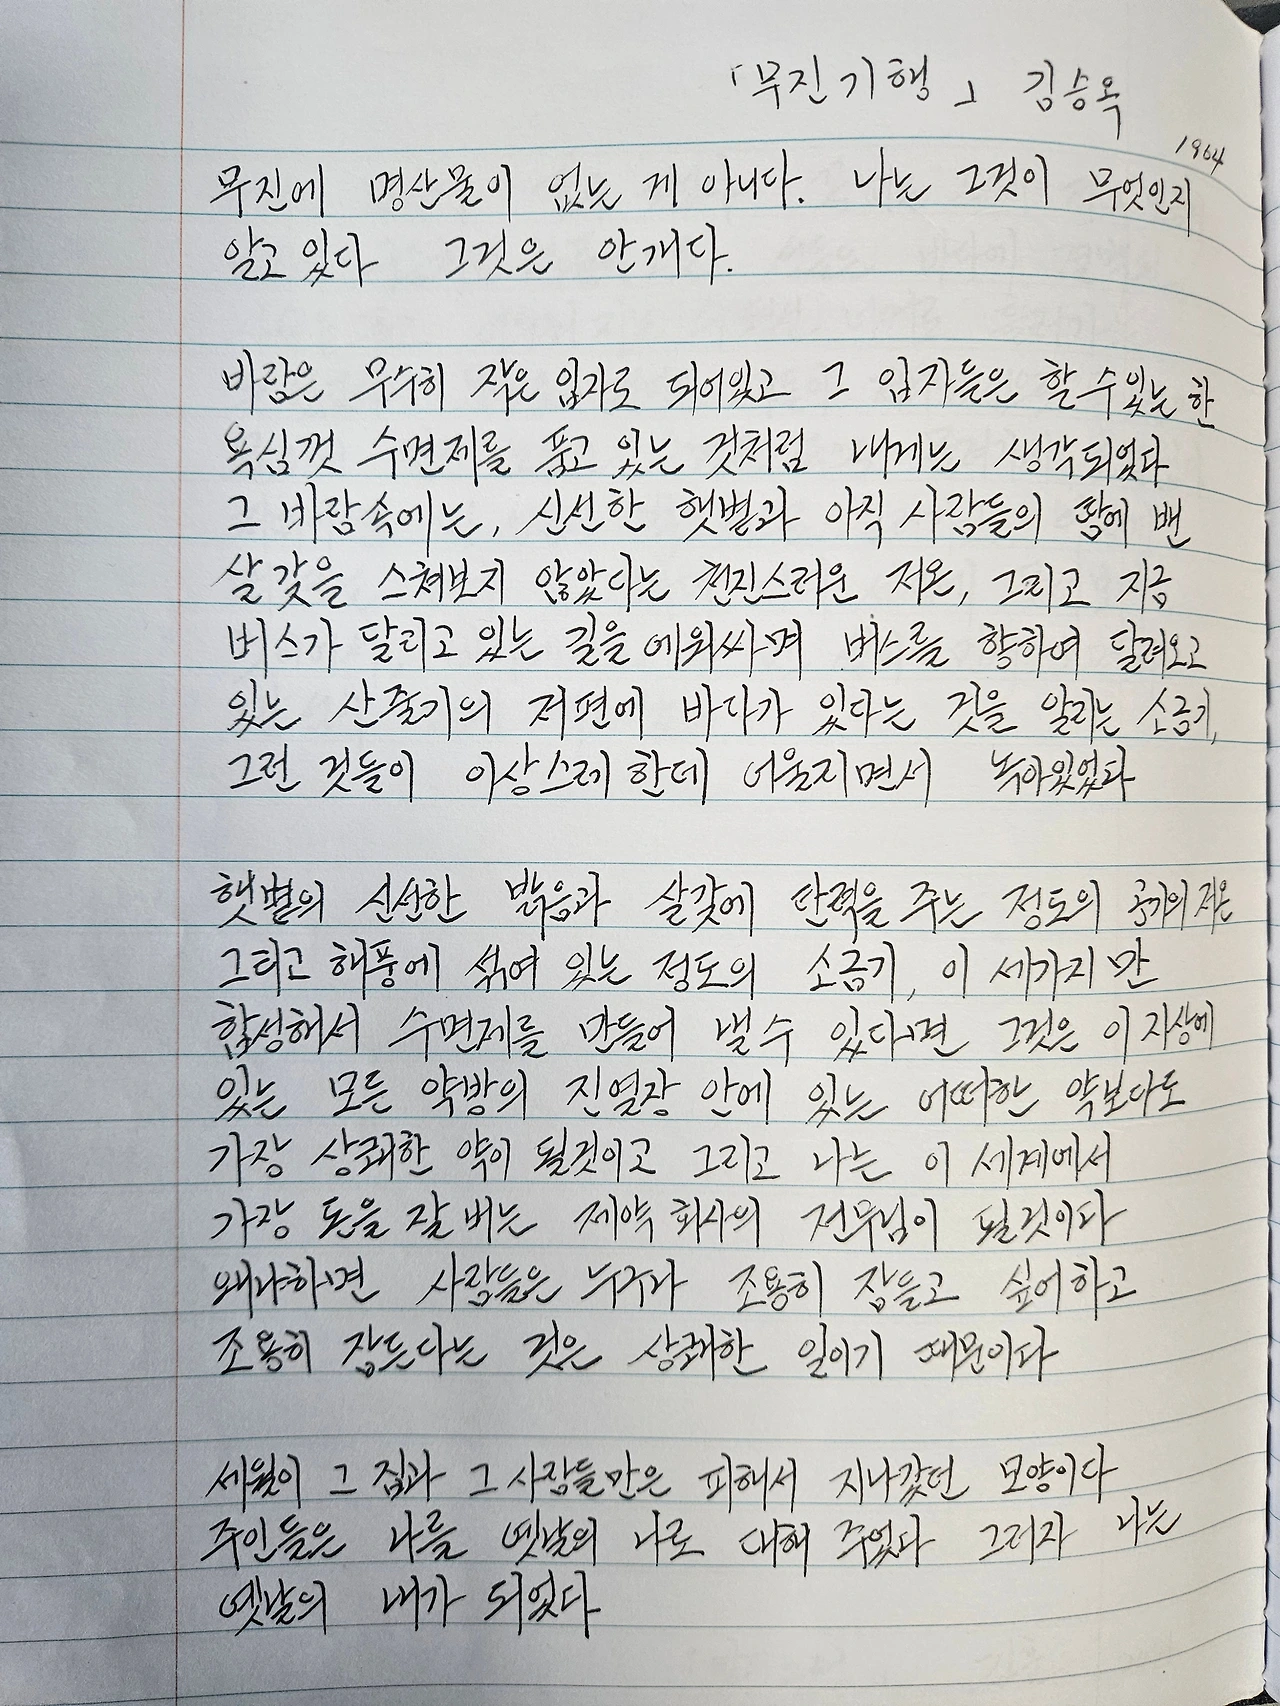 「무진기행」 김승옥
1964
무진에 명산물이 없는 게 아니다. 나는 그것이 무엇인지
알고 있다 그것은 안개다.
바람은 무수히 작은 입자로 되어있고 그 입자들은 할 수 있는 한
욕심껏 수면제를 품고 있는 것처럼 내게는 생각되었다
그 바람속에는, 신선한 햇볕과 아직 사람들의 땀에 밴
살갗을 스쳐보지 않았다는 천진스러운 저온, 그리고 지금
버스가 달리고 있는 길을 에워싸며 버스를 향하여 달려오고
있는 산줄기의 저편에 바다가 있다는 것을 알리는 소금기,
그런 것들이 이상스레 한데 어울지면서 녹아있었다
햇볕의 신선한 밝음과 살갗에 탄력을 주는 정도의 공기의 저온
그리고 해풍에 섞여 있는 정도의 소금기, 이 세가지만
합성해서 수면제를 만들어 낼 수 있다면 그것은 이 지상에
있는 모든 약방의 진열장 안에 있는 어떠한 약보다도
가장 상쾌한 약이 될것이고 그리고 나는 이 세계에서
가장 돈을 잘 버는 제약 회사의 전무님이 될것이다
왜냐하면 사람들은 누구나 조용히 잠들고 싶어하고
조용히 잠든다는 것은 상쾌한 일이기 때문이다
세월이 그 집과 그 사람들만은 피해서 지나갔던 모양이다
주인들은 나를 옛날의 나로 대해 주었다 그러자 나는
옛날의 내가 되었다